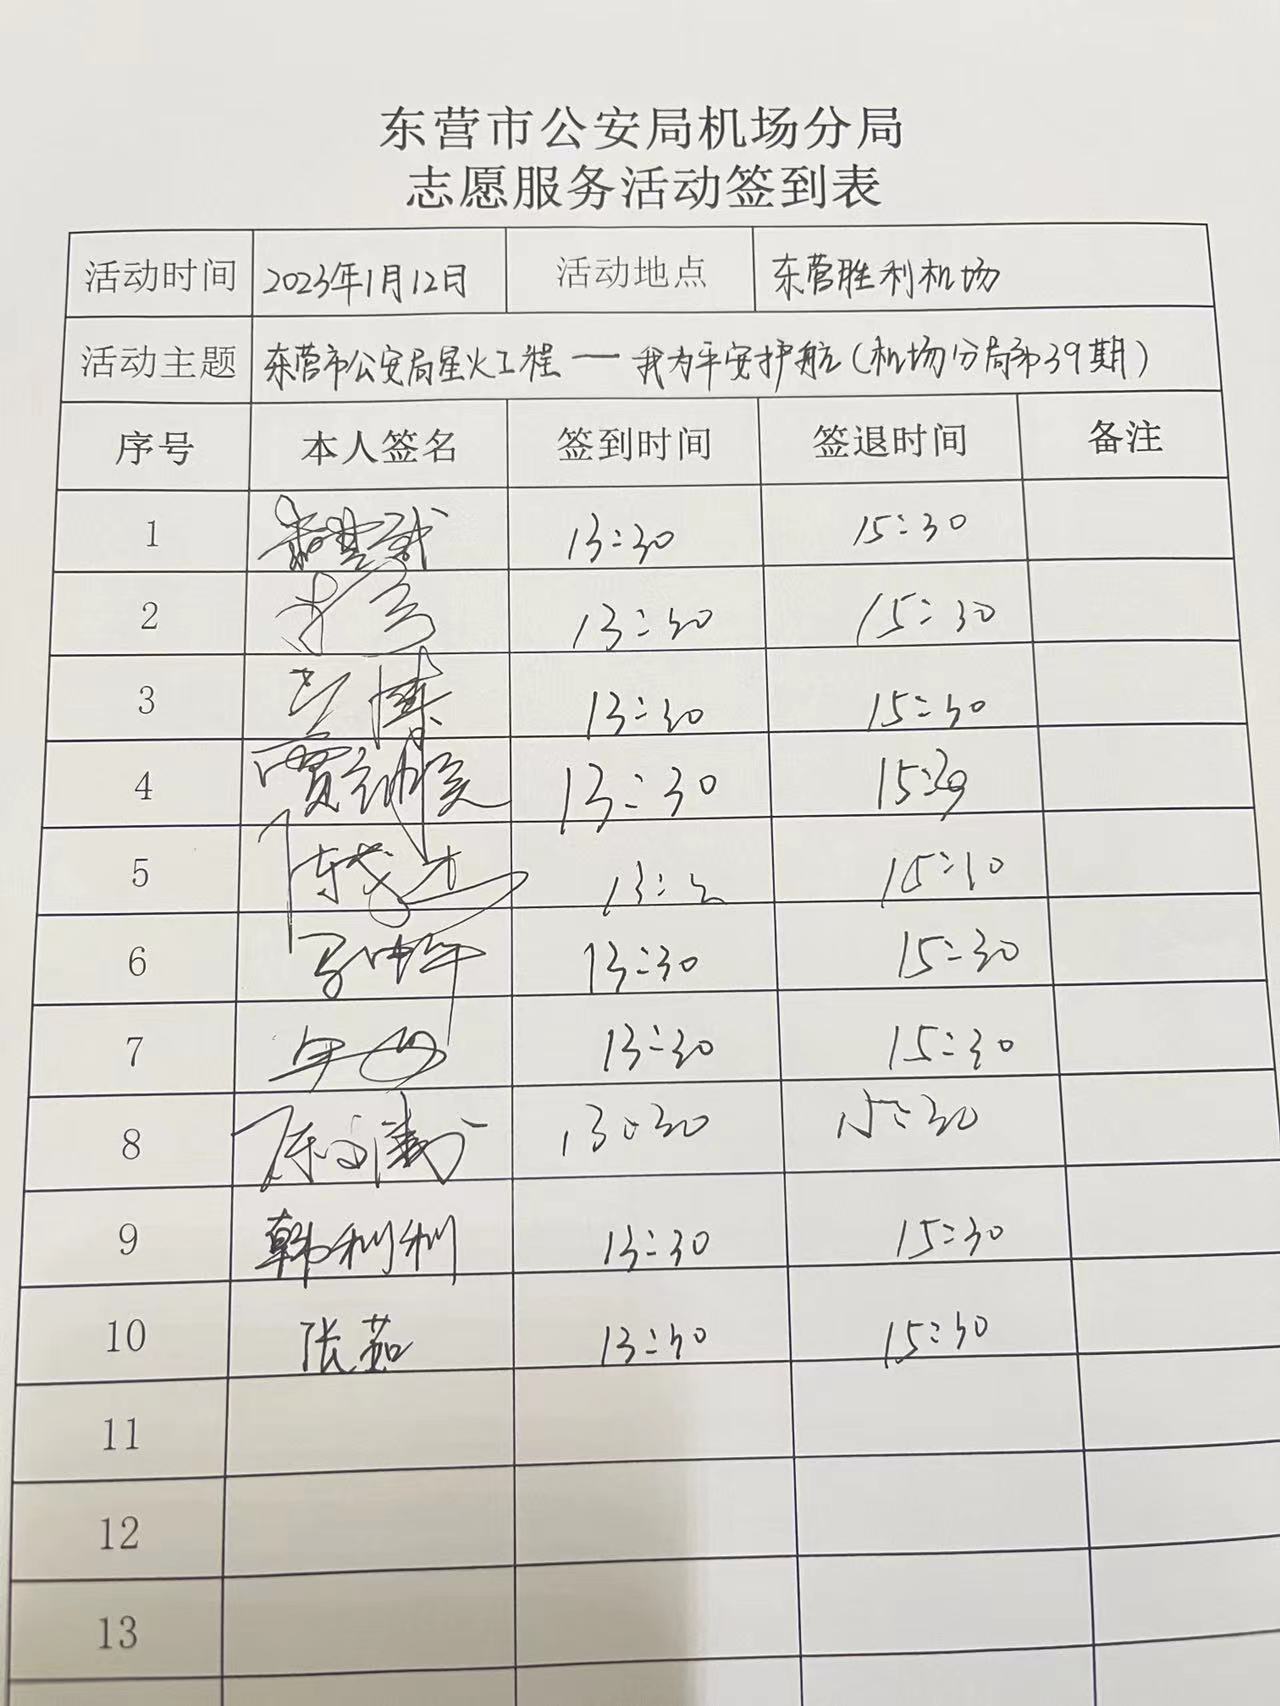 东营市公安局机场分局
志愿服务活动签到表
活动时间 2023年1月12日 活动地点 东营胜利机场
活动主题 东营市公安局星火工程——我为平安护航(机场分局第39期)
序号 本人签名 签到时间 签退时间 备注
1 13:30 15:30
2 13:30 15:30
3 13:30 15:30
4 13:30 15:30
5 15:30
6 13:30 15:30
7 13:30 15:30
8 13:30 15:30
9 韩利利 13:30 15:30
10 张茹 13:30 15:30
11
12
13